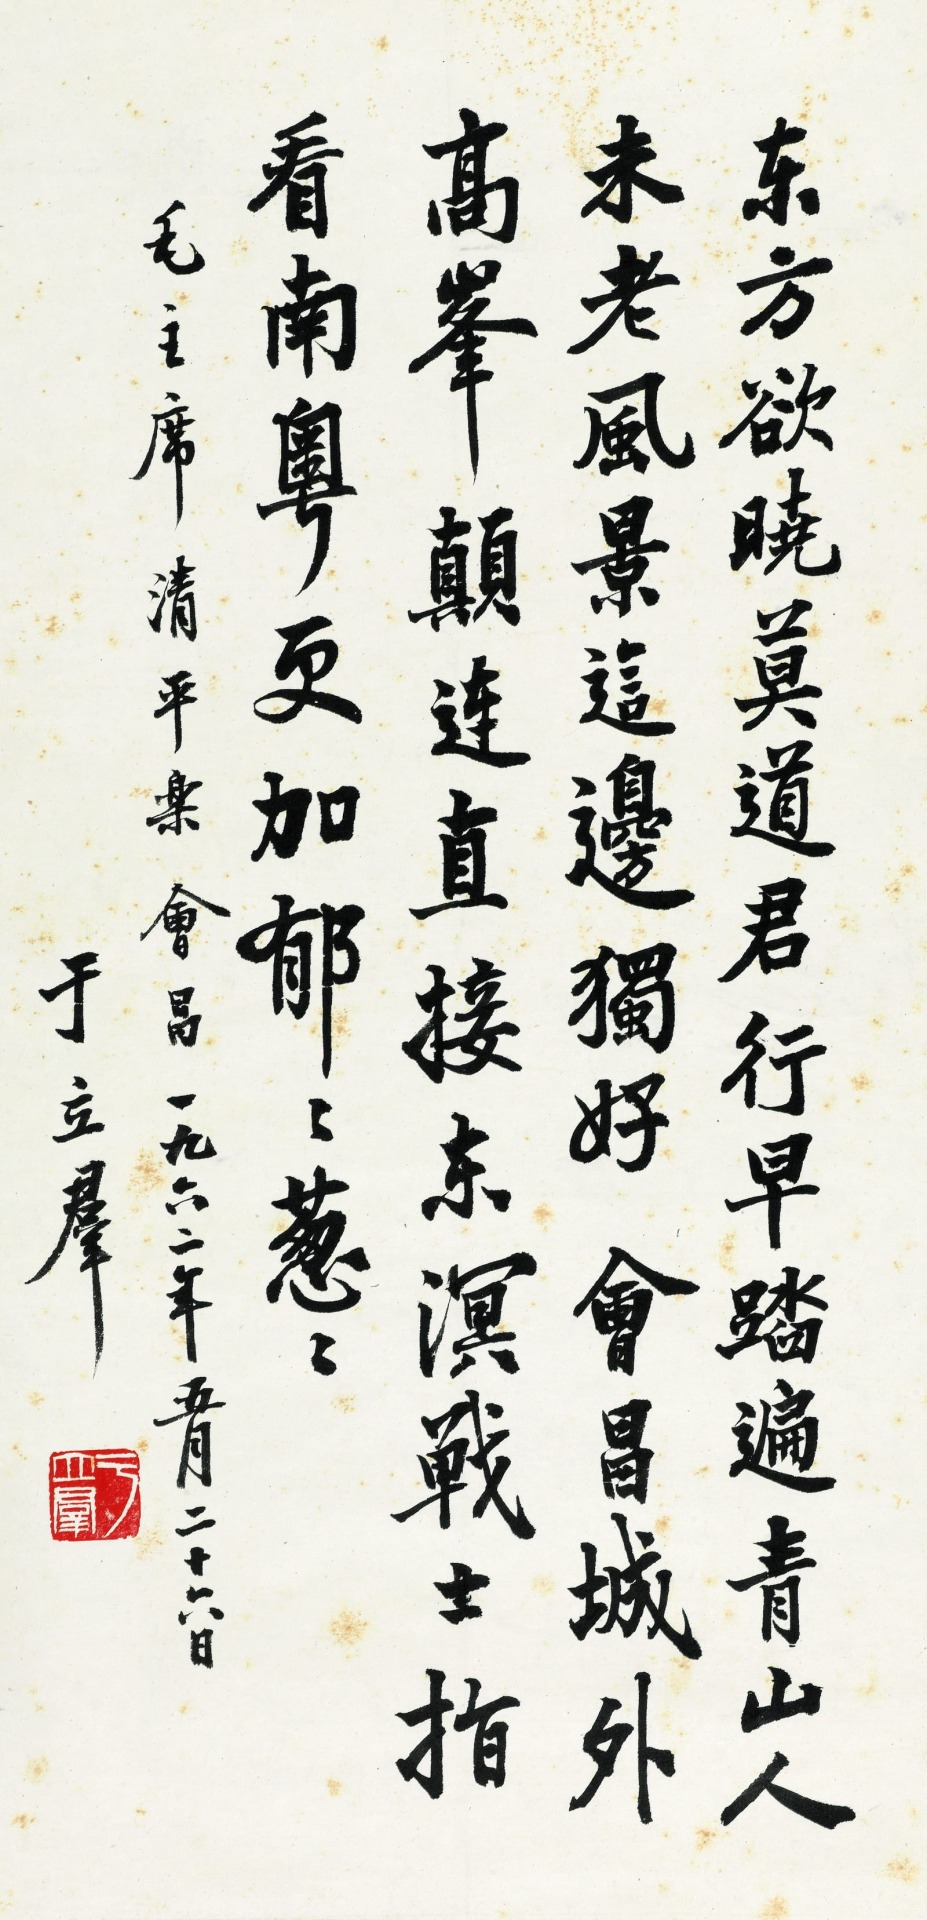 东方欲晓莫道君行早踏遍青山人
未老風景這邊獨好 會昌城外
髙峯顛连直接东溟戰士指
看南粵更加郁〻葱〻
毛主席清平楽會昌一九六二年五月二十六日
于立羣
于立羣